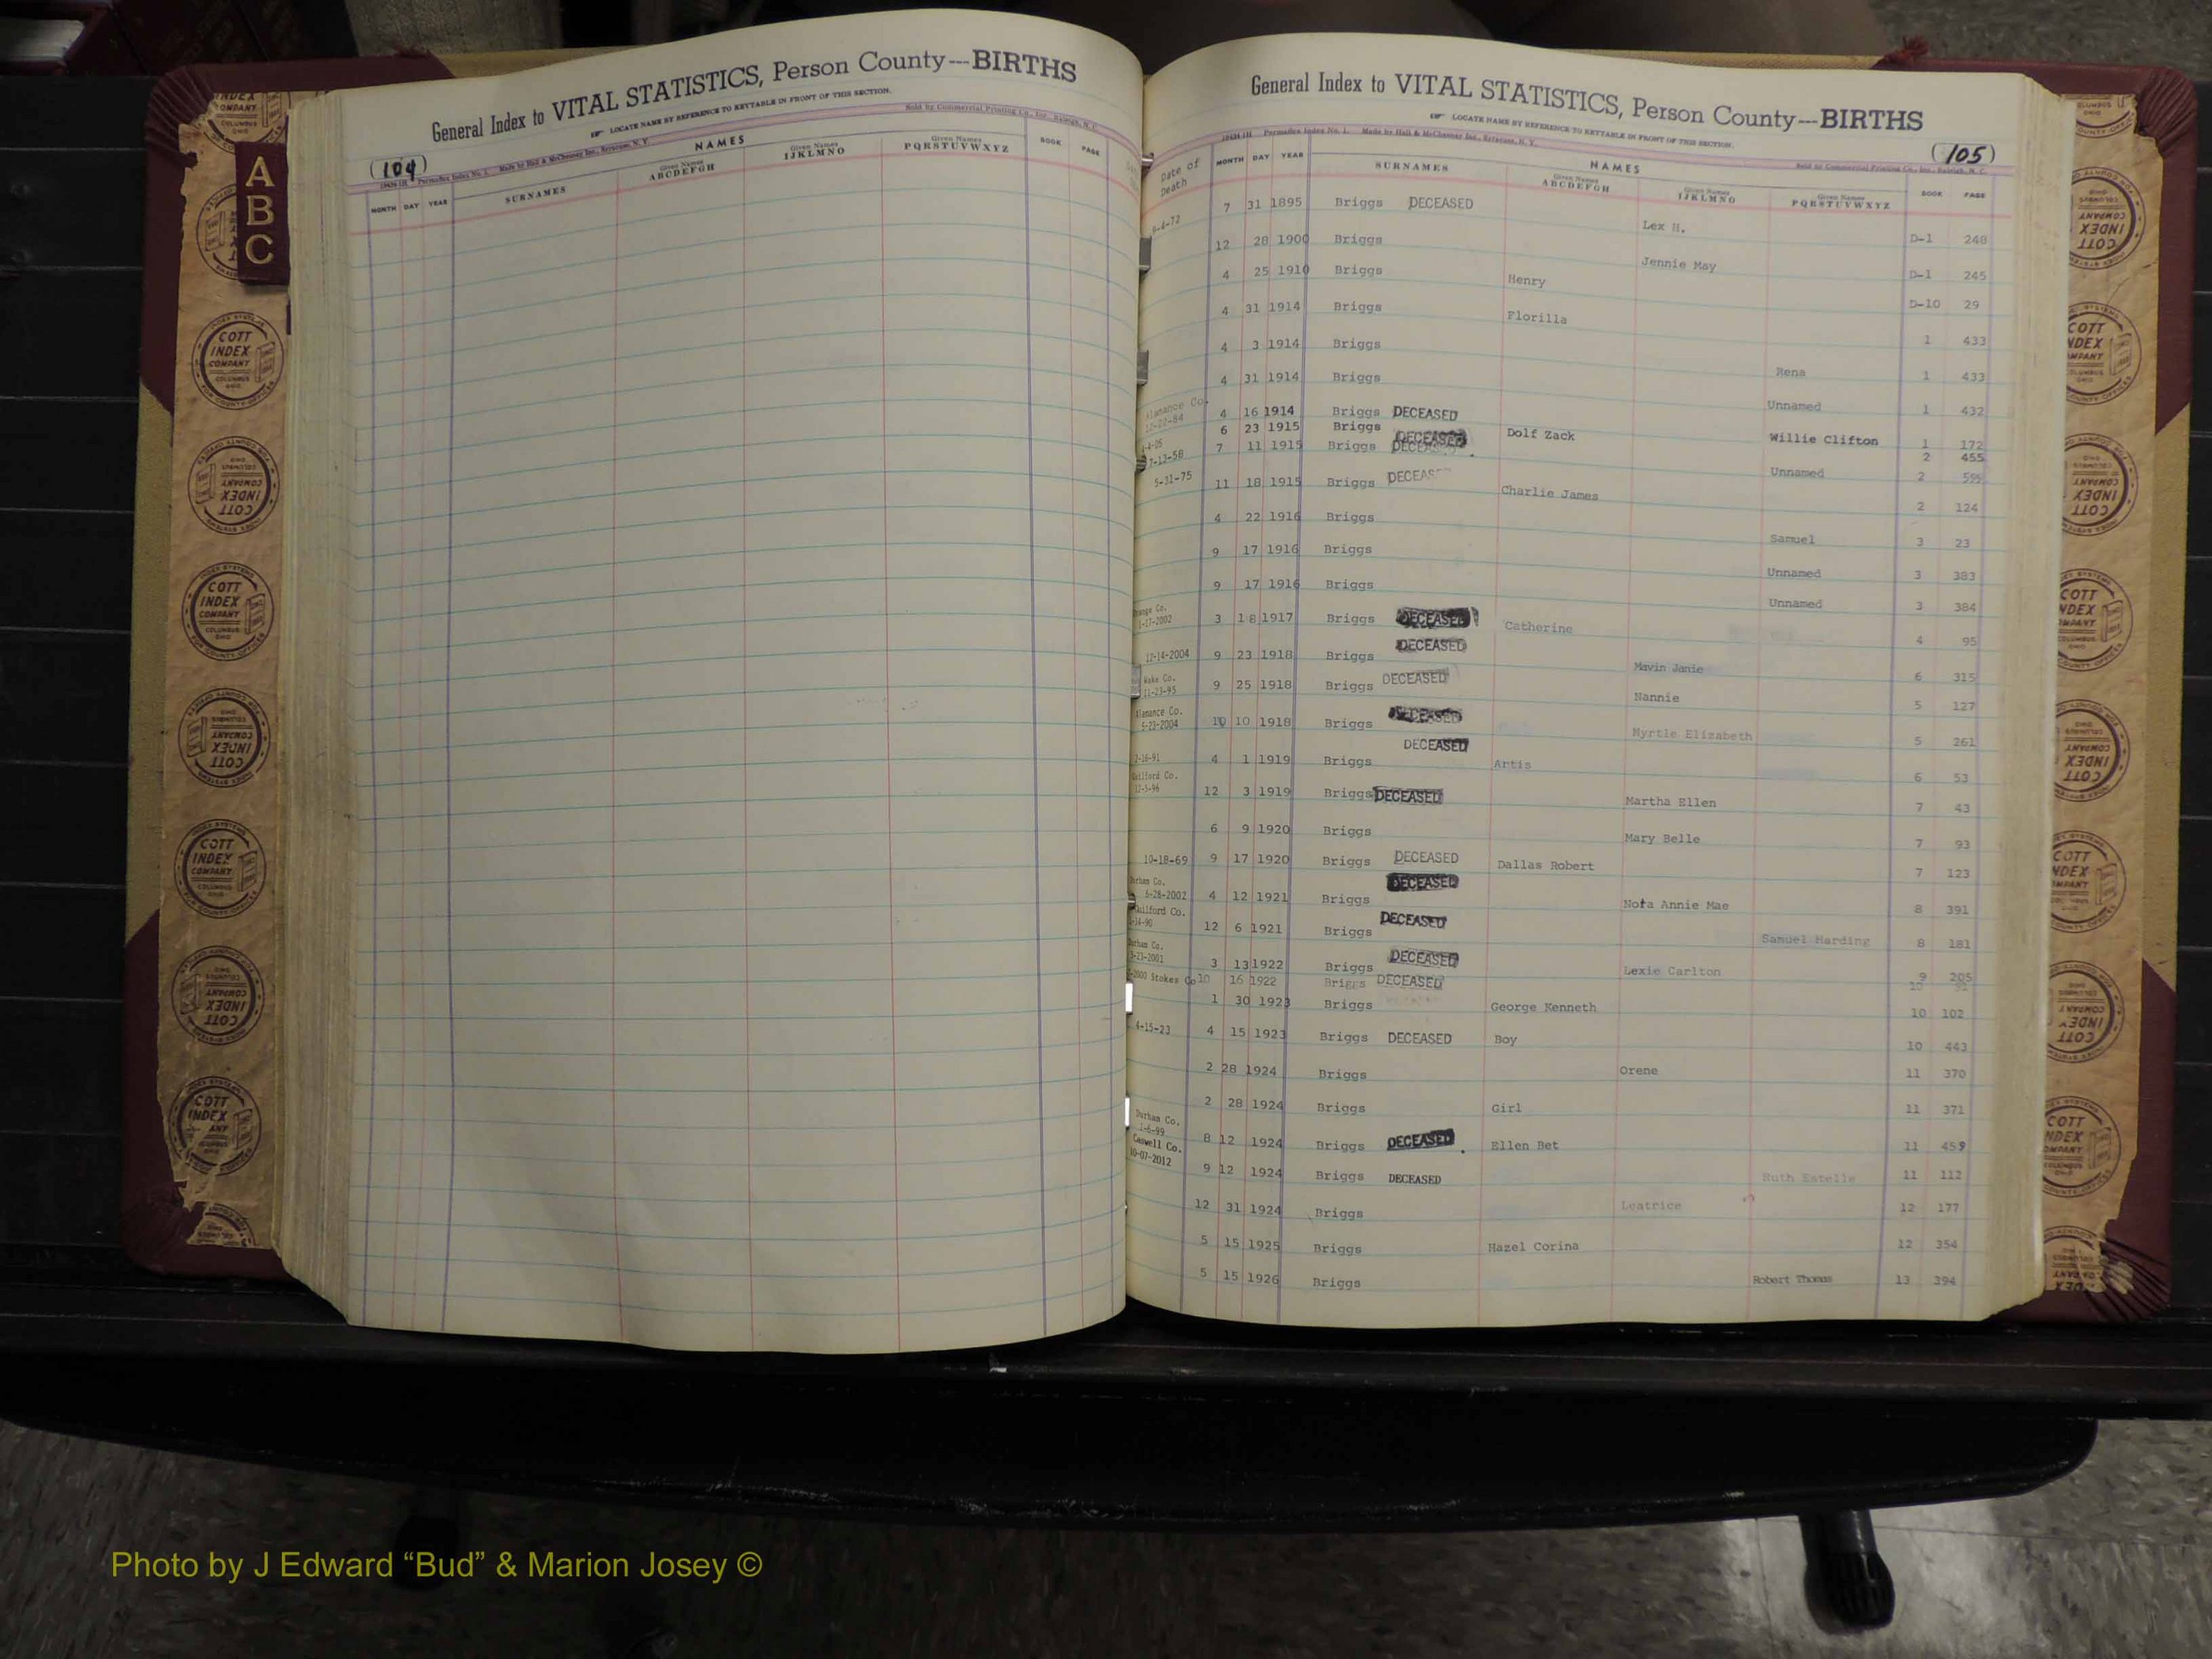 General Index to VITAL STATISTICS, Person County---BIRTHS
LOCATE NAME BY REFERENCE TO KEYTABLE IN FRONT OF THIS SECTION.
(104)
Made by Hall & McChesney Inc., Syracuse, N. Y.
Sold by Commercial Printing Co., Inc., Raleigh, N. C.
NAMES
MONTH DAY YEAR SURNAMES Given Names ABCDEFGH Given Names IJKLMNO Given Names PQRSTUVWXYZ BOOK PAGE
A
B
C
COTT
INDEX
COMPANY
COLUMBUS
OHIO
General Index to VITAL STATISTICS, Person County---BIRTHS
LOCATE NAME BY REFERENCE TO KEYTABLE IN FRONT OF THIS SECTION.
(105)
Permaflex Index No. 1. Made by Hall & McChesney Inc., Syracuse, N. Y.
Sold by Commercial Printing Co., Inc., Raleigh, N. C.
NAMES
Date of Death MONTH DAY YEAR SURNAMES Given Names ABCDEFGH Given Names IJKLMNO Given Names PQRSTUVWXYZ BOOK PAGE
7 31 1895 Briggs DECEASED Lex H. D-1 248
12 28 1900 Briggs Jennie May D-1 245
4 25 1910 Briggs Henry D-10 29
4 31 1914 Briggs Florilla 1 433
4 3 1914 Briggs Rena 1 433
4 31 1914 Briggs Unnamed 1 432
Alamance Co. 4 16 1914 Briggs DECEASED Willie Clifton 1 172
6 23 1915 Briggs DECEASED Dolf Zack 2 455
7-13-58 7 11 1915 Briggs DECEASED Unnamed 2 595
5-31-75 11 18 1915 Briggs DECEASED Charlie James 2 124
4 22 1916 Briggs Samuel 3 23
9 17 1916 Briggs Unnamed 3 383
9 17 1916 Briggs Unnamed 3 384
1-17-2002 3 18 1917 Briggs DECEASED Catherine 4 95
12-14-2004 9 23 1918 Briggs DECEASED Mavin Janie 6 315
Wake Co. 11-23-95 9 25 1918 Briggs DECEASED Nannie 5 127
Alamance Co. 5-23-2004 10 10 1918 Briggs DECEASED Myrtle Elizabeth 5 261
4 1 1919 Briggs DECEASED Artis 6 53
12-5-96 12 3 1919 Briggs DECEASED Martha Ellen 7 43
6 9 1920 Briggs Mary Belle 7 93
10-18-69 9 17 1920 Briggs DECEASED Dallas Robert 7 123
6-28-2002 4 12 1921 Briggs DECEASED Nora Annie Mae 8 391
Guilford Co. 12 6 1921 Briggs DECEASED Samuel Harding 8 181
3 13 1922 Briggs DECEASED Lexie Carlton 9 205
2000 Stokes Co 10 16 1922 Briggs DECEASED 10
1 30 1923 Briggs George Kenneth 10 102
4-15-23 4 15 1923 Briggs DECEASED Boy 10 443
2 28 1924 Briggs Orene 11 370
2 28 1924 Briggs Girl 11 371
Durham Co. 1-6-99 8 12 1924 Briggs DECEASED Ellen Bet 11 459
Caswell Co. 10-07-2012 9 12 1924 Briggs DECEASED Ruth Estelle 11 112
12 31 1924 Briggs Leatrice 12 177
5 15 1925 Briggs Hazel Corina 12 354
5 15 1926 Briggs Robert Thomas 13 394
Photo by J Edward “Bud” & Marion Josey ©